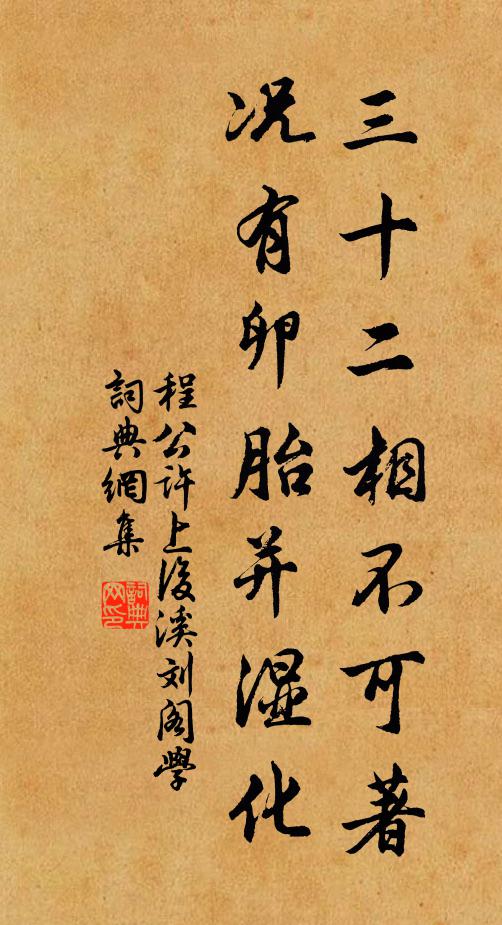 三十二相不可著
况有卵胎并湿化
程公许上後溪刘阁學
詞典網集
詞典
网印